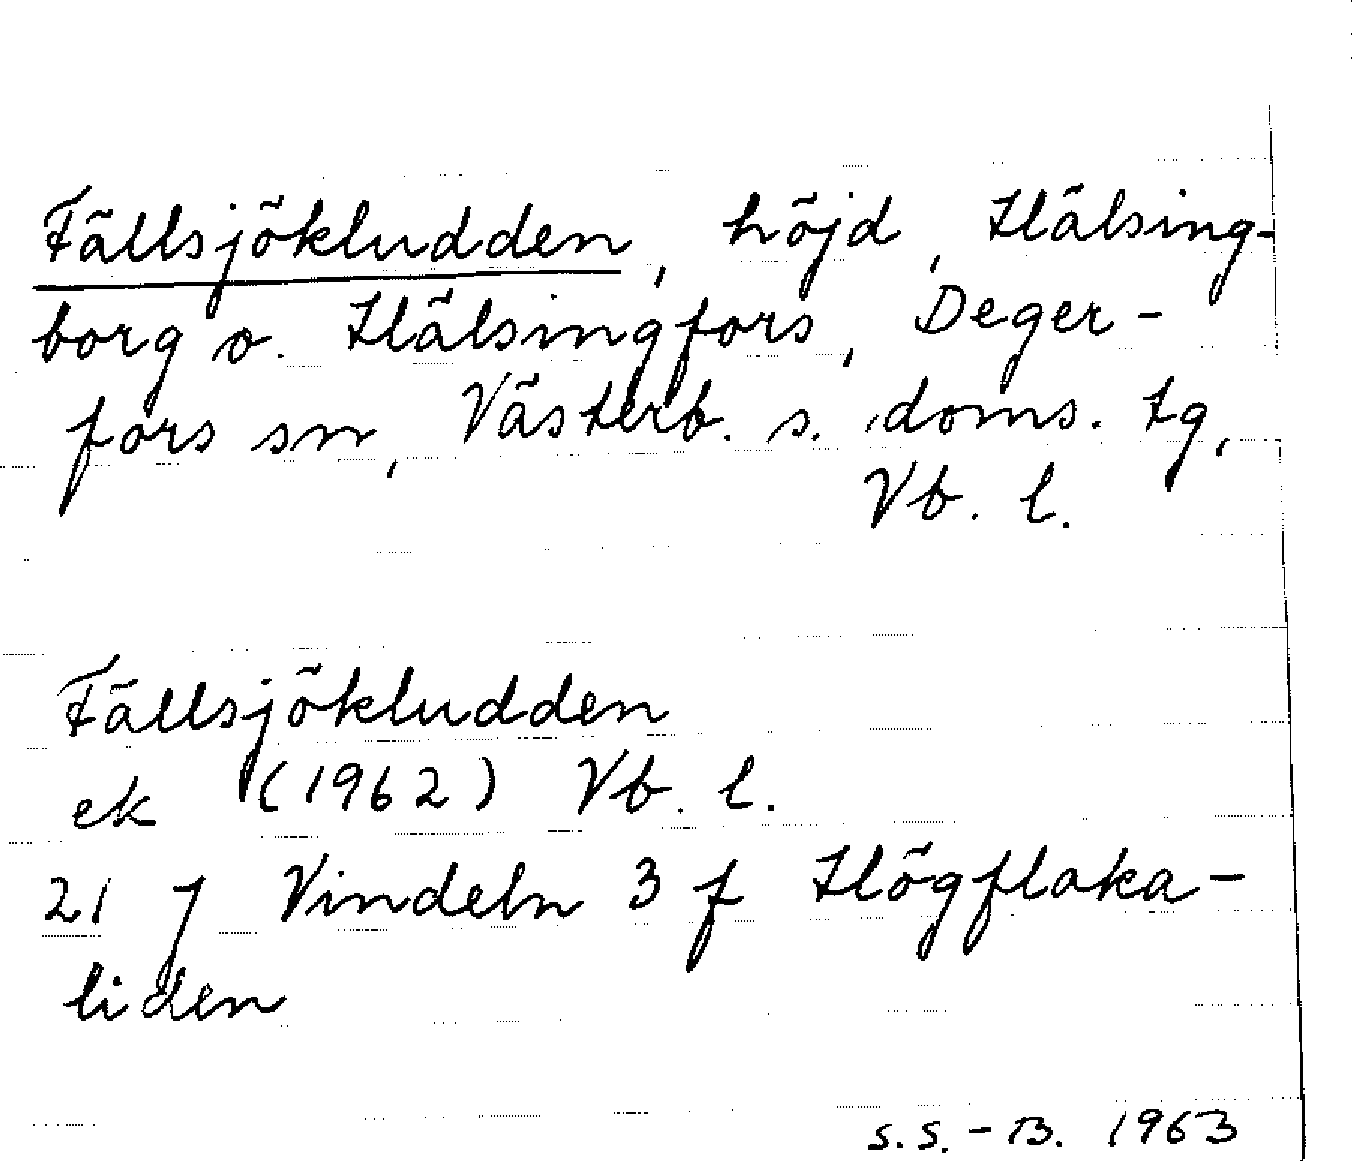 Fällsjökludden, höjd, Hälsing-
borg o. Hälsingfors, Deger-
fors sn, Västerb. s. doms. tg,
Vb. l.
Fällsjökludden
ek (1962) Vb. l.
21 J Vindeln 3 f Högflaka-
liden
S.S.-B. 1963